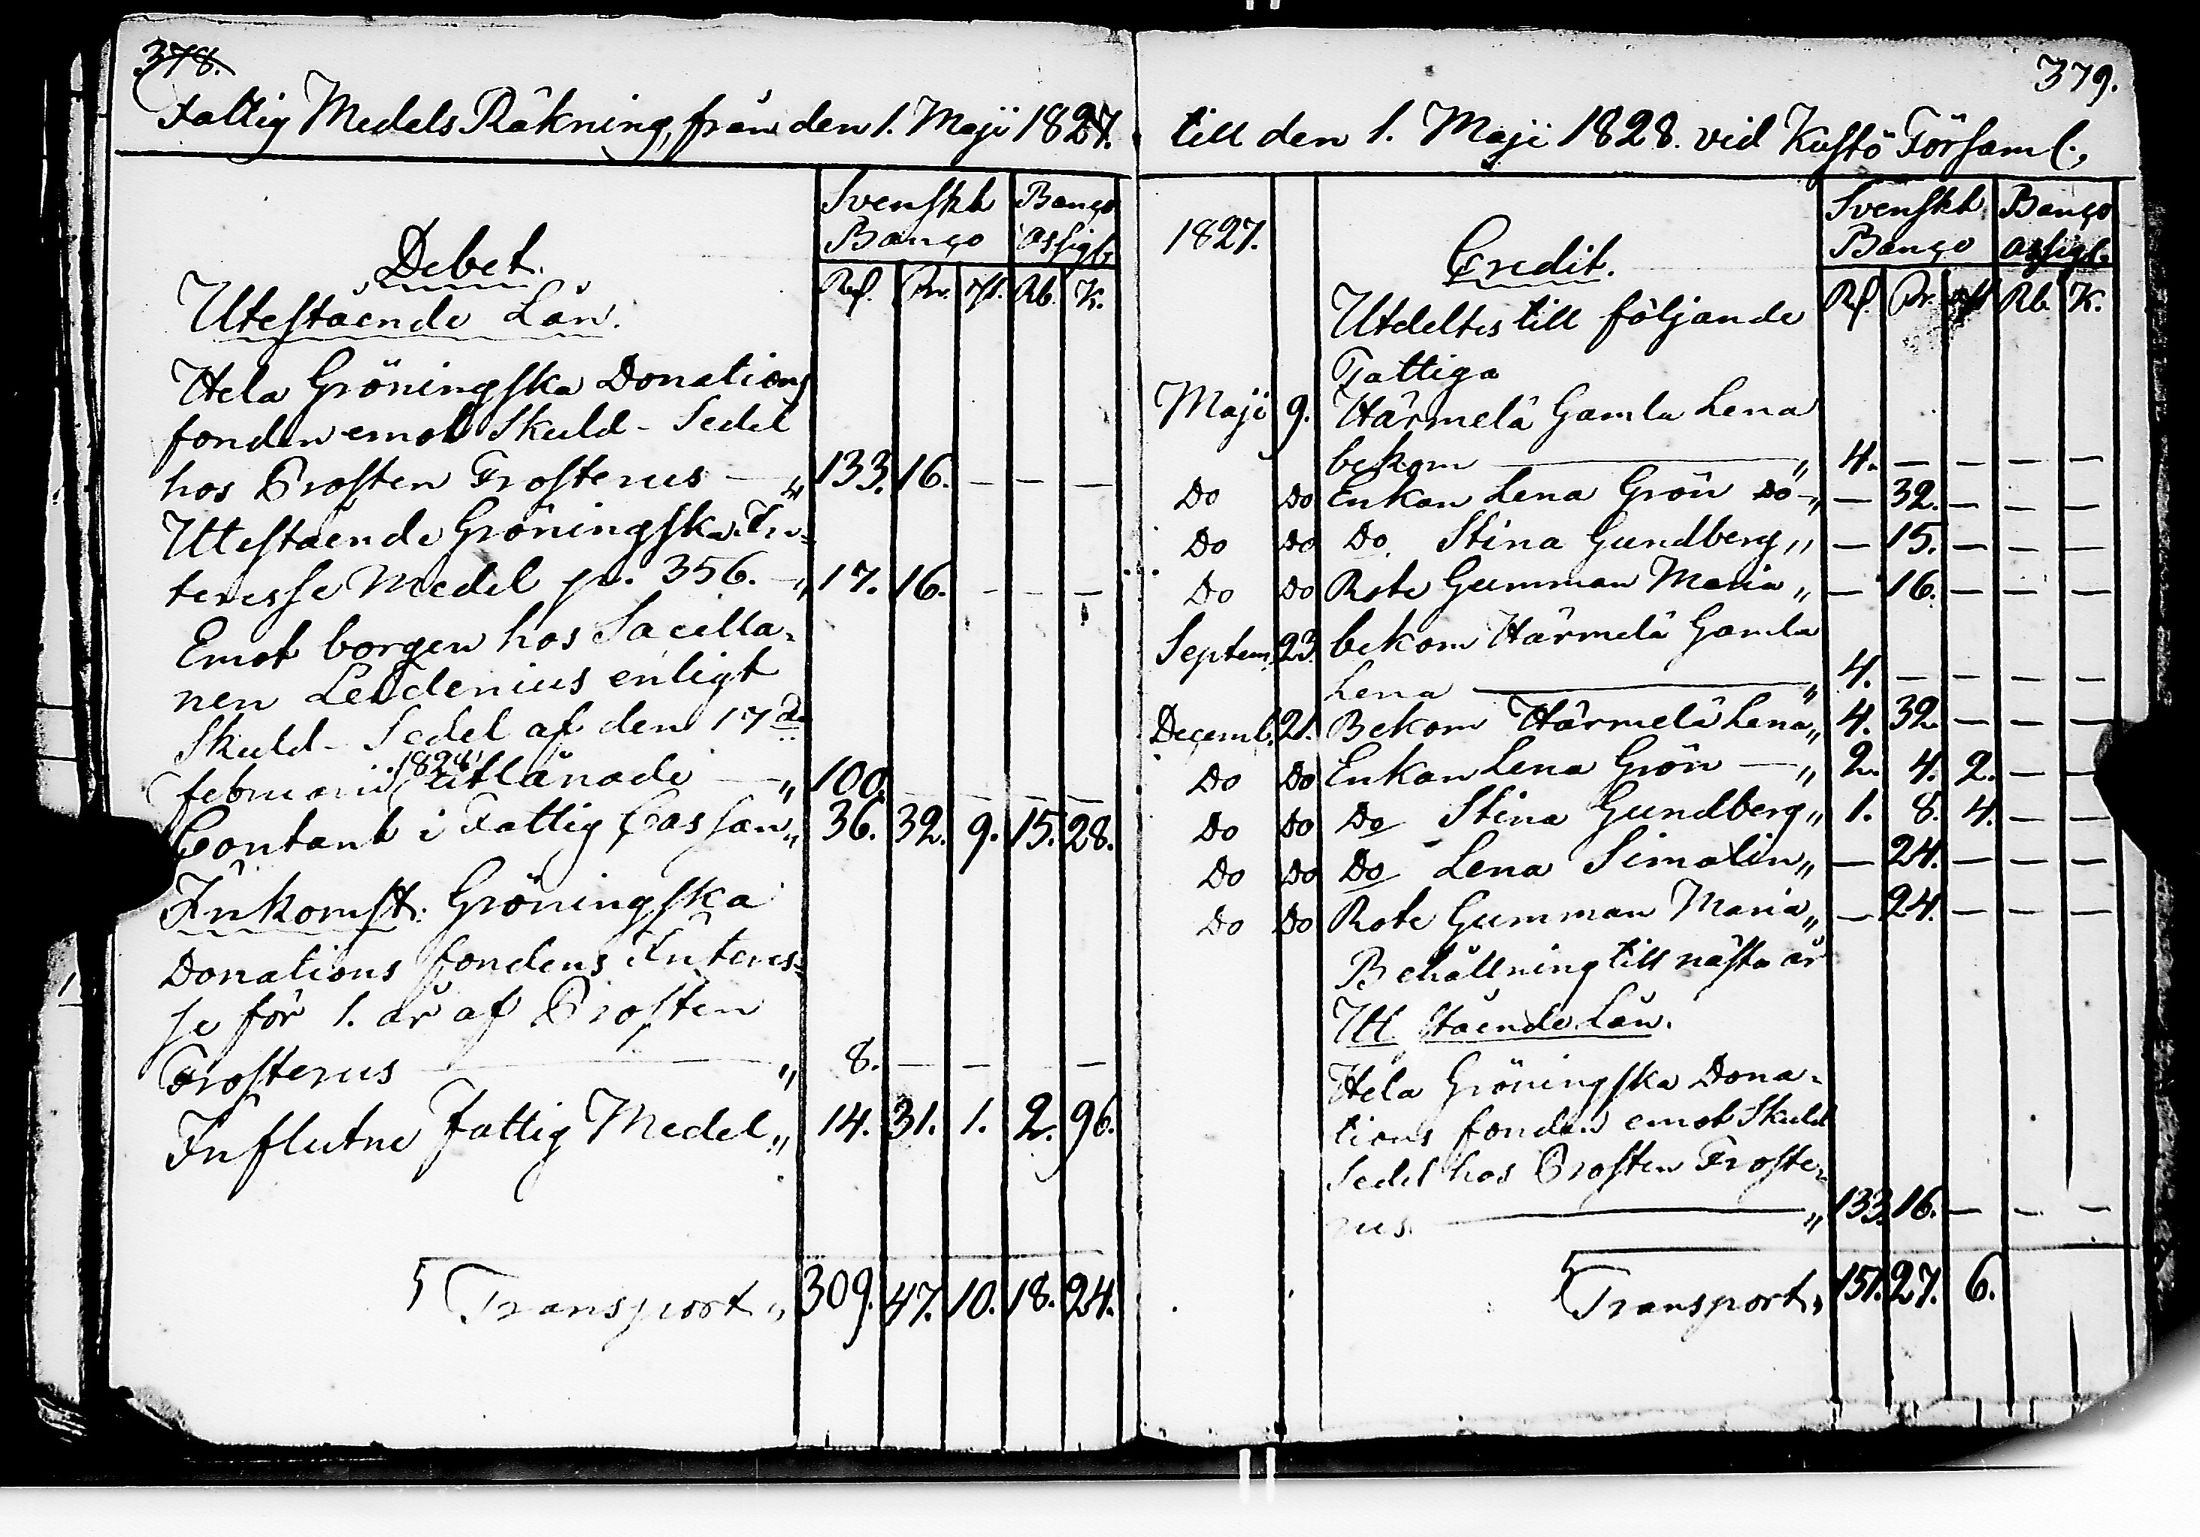 378.
Fattig Medels Räkning, från den 1. Maji 1827.
Svenskt Banço
Banço assigt.
Debet.
Rd. Pr. rst. Rb. K.
Utestående Lån.
Hela Gröningska Donations
fonden emot Skuld-Sedel
hos Prosten Frosterus — „ 133. 16. — — —
Utestående Gröningska In-
teresse Medel p. 356. — „ 17. 16. — — —
Emot borgen hos Sacella-
nen Leidenius enligt
Skuld-Sedel af den 17de
februarii 1828 utlånade — „ 100. — — — —
Contant i Fattig Cassan „ 36. 32. 9. 15. 28.
Inkomst: Gröningska
Donations fondens Interes-
se för 1. år af Prosten
Frosterus — „ 8. — — —
Influtne Fattig Medel „ 14. 31. 1. 2. 96.
Transport „ 309. 47. 10. 18. 24.
379.
till den 1. Maji 1828. vid Kustö Församl.
Svenskt Banço
Banço assigt.
1827.
Credit.
Rd. Pr. rst Rb. K.
Utdeltes till följande
Fattiga
Maji 9. Härmelä Gamla Lena
bekom — „ 4. — — — —
Do Do Enkan Lena Grön Do — „ — 32. — — —
Do Do Do Stina Gundberg „ — 15. — — —
Do Do Rote Gumman Maria „ — 16. — — —
Septem. 23. bekom Härmelä Gamla
Lena — „ 4. — — — —
Decemb. 21. Bekom Härmelä Lena „ 4. 32. — — —
Do Do Enkan Lena Grön — „ 2. 4. 2. — —
Do Do Do Stina Gundberg „ 1. 8. 4. — —
Do Do Do Lena Simolin „ — 24. — — —
Do Do Rote Gumman Maria „ — 24. — — —
Behållning till nästa år
Ut stående Lån.
Hela Gröningska Dona-
tions fonden emot Skuld
Sedel hos Prosten Froste-
rus. — „ 133. 16. — — —
Transport „ 151. 27. 6.